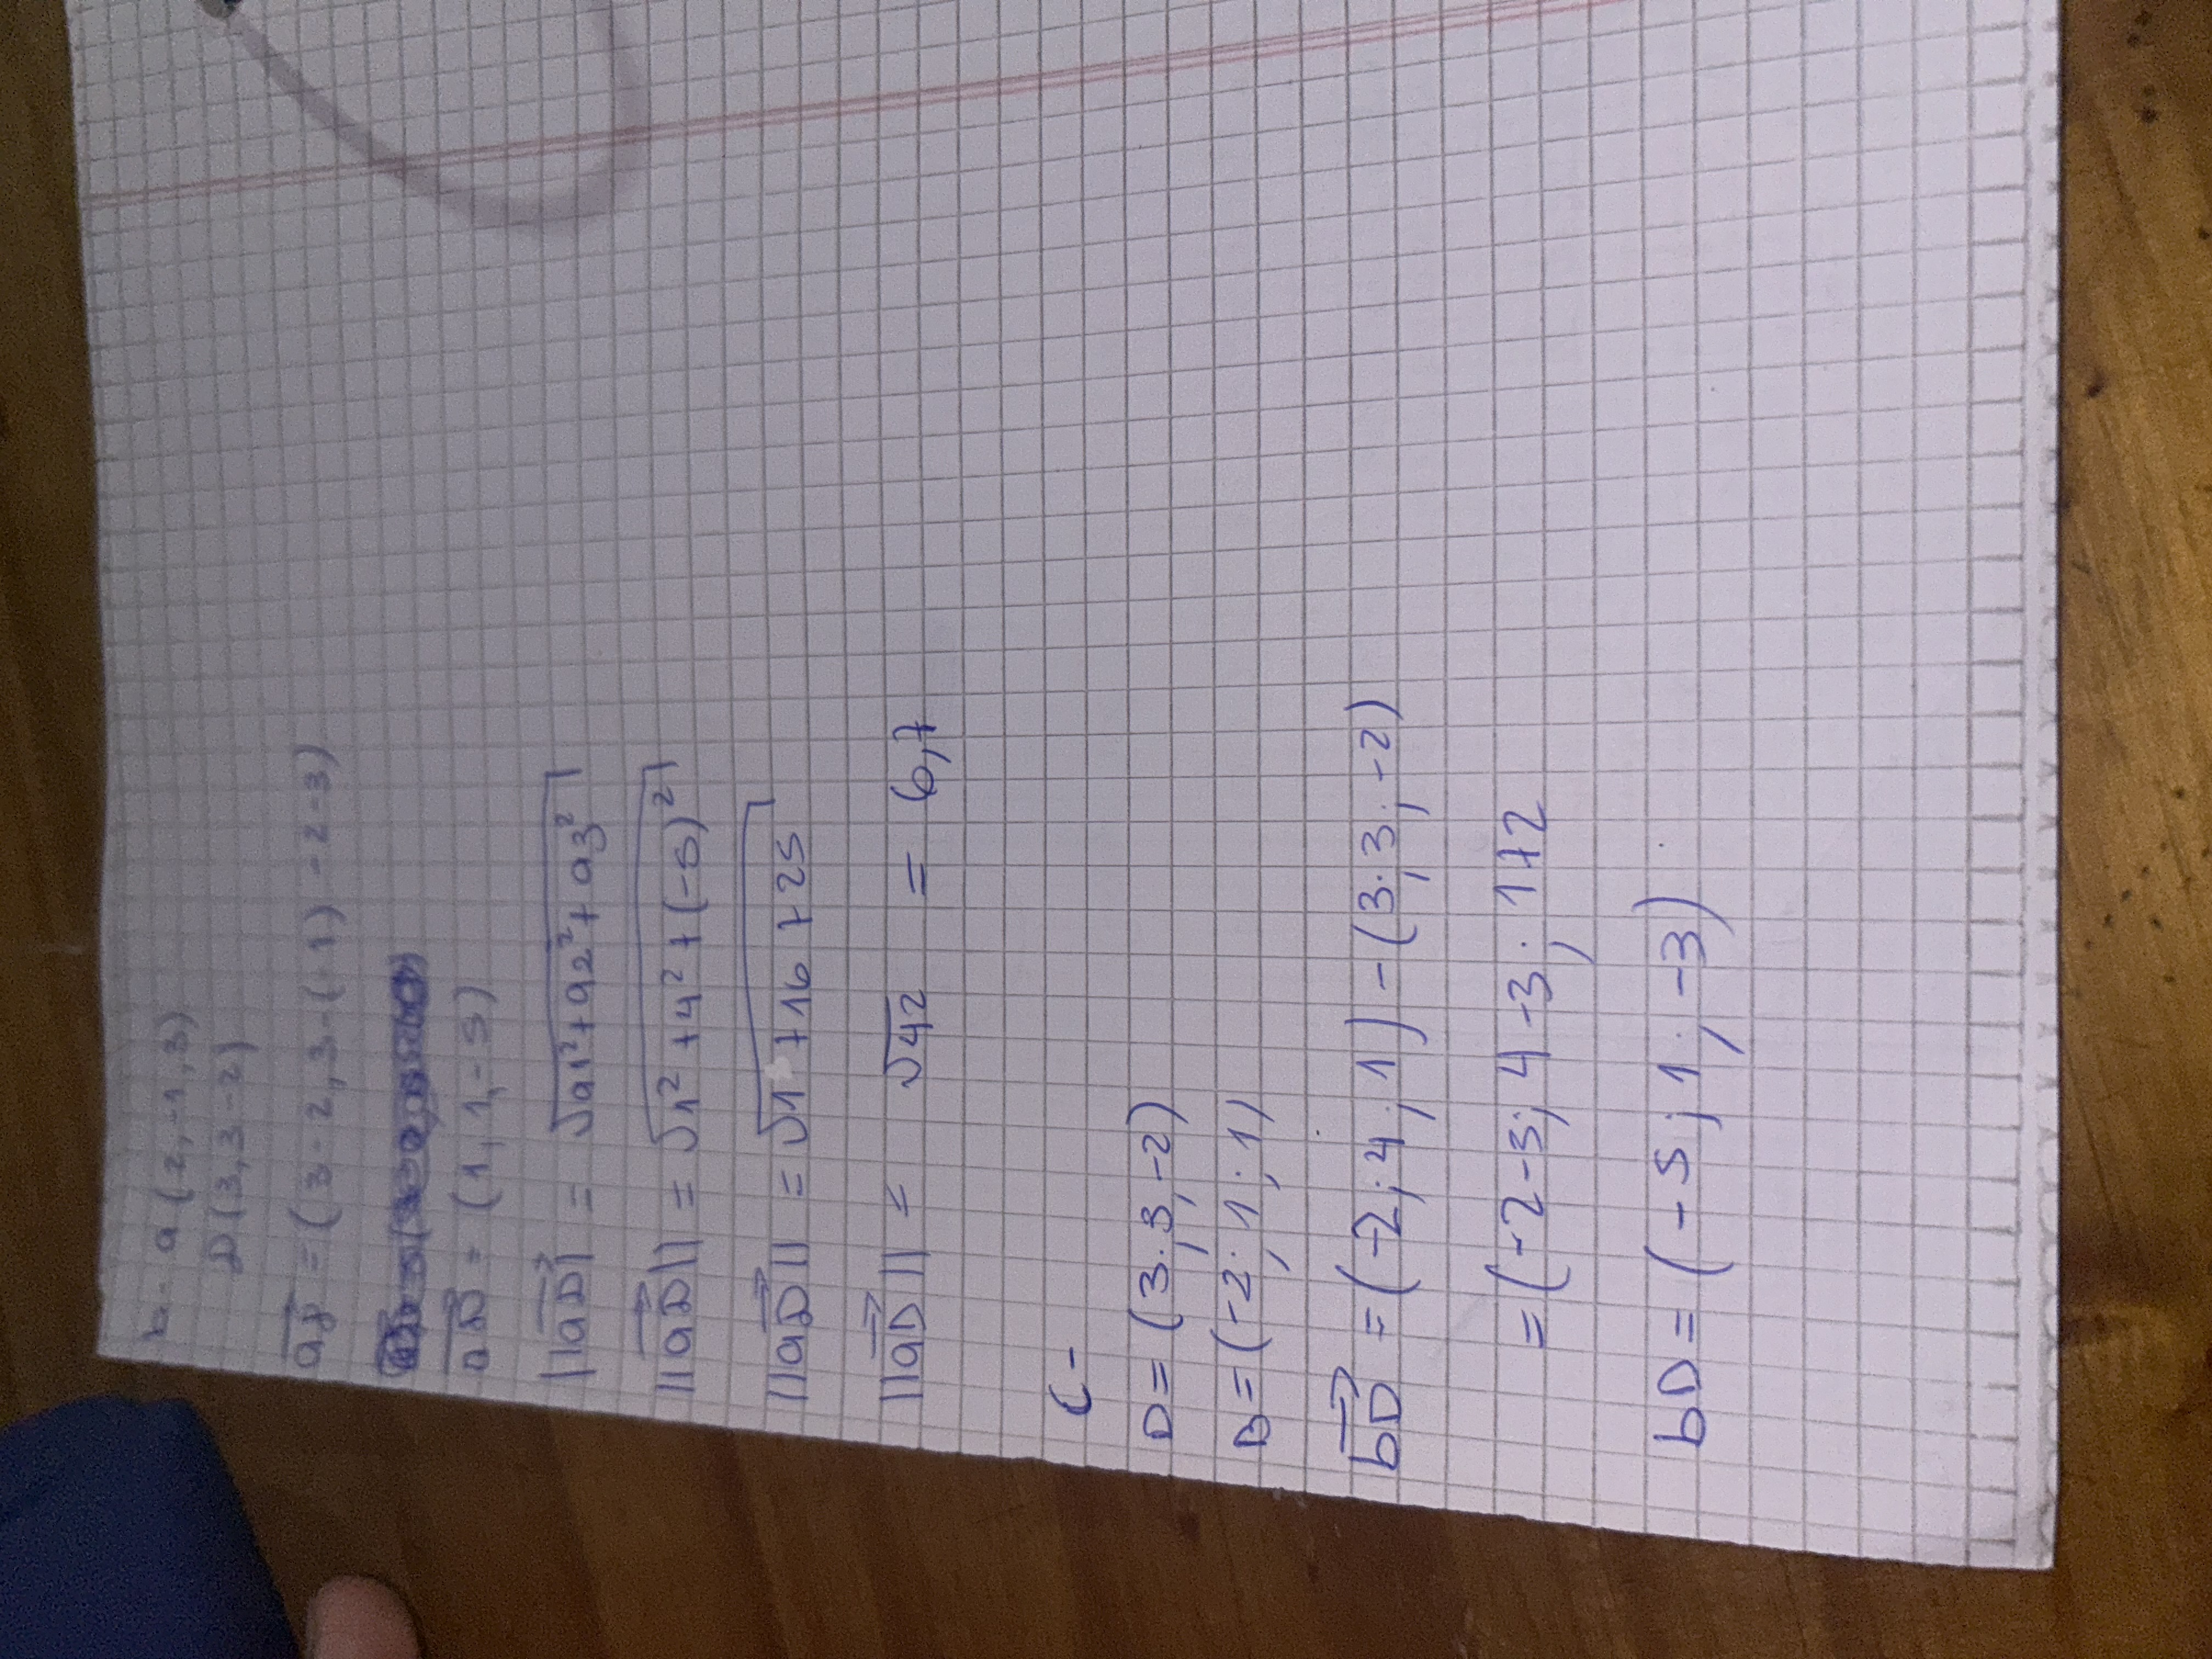 b- a (2,-1,3)
D (3,3-2)
aD = (3-2,3-(-1)-2-3)
aD = (1,1,-5)
||aD| = √a1²+a2²+a3²
||aD|| = √1²+4²+(-5)²
||aD|| = √1+16+25
||aD|| = √42 = 6,7
C-
D= (3;3,-2)
B=(-2;1;1)
bD =(-2;4;1)-(3;3;-2)
=(-2-3;4-3;1+2
bD= (-5;1;-3)